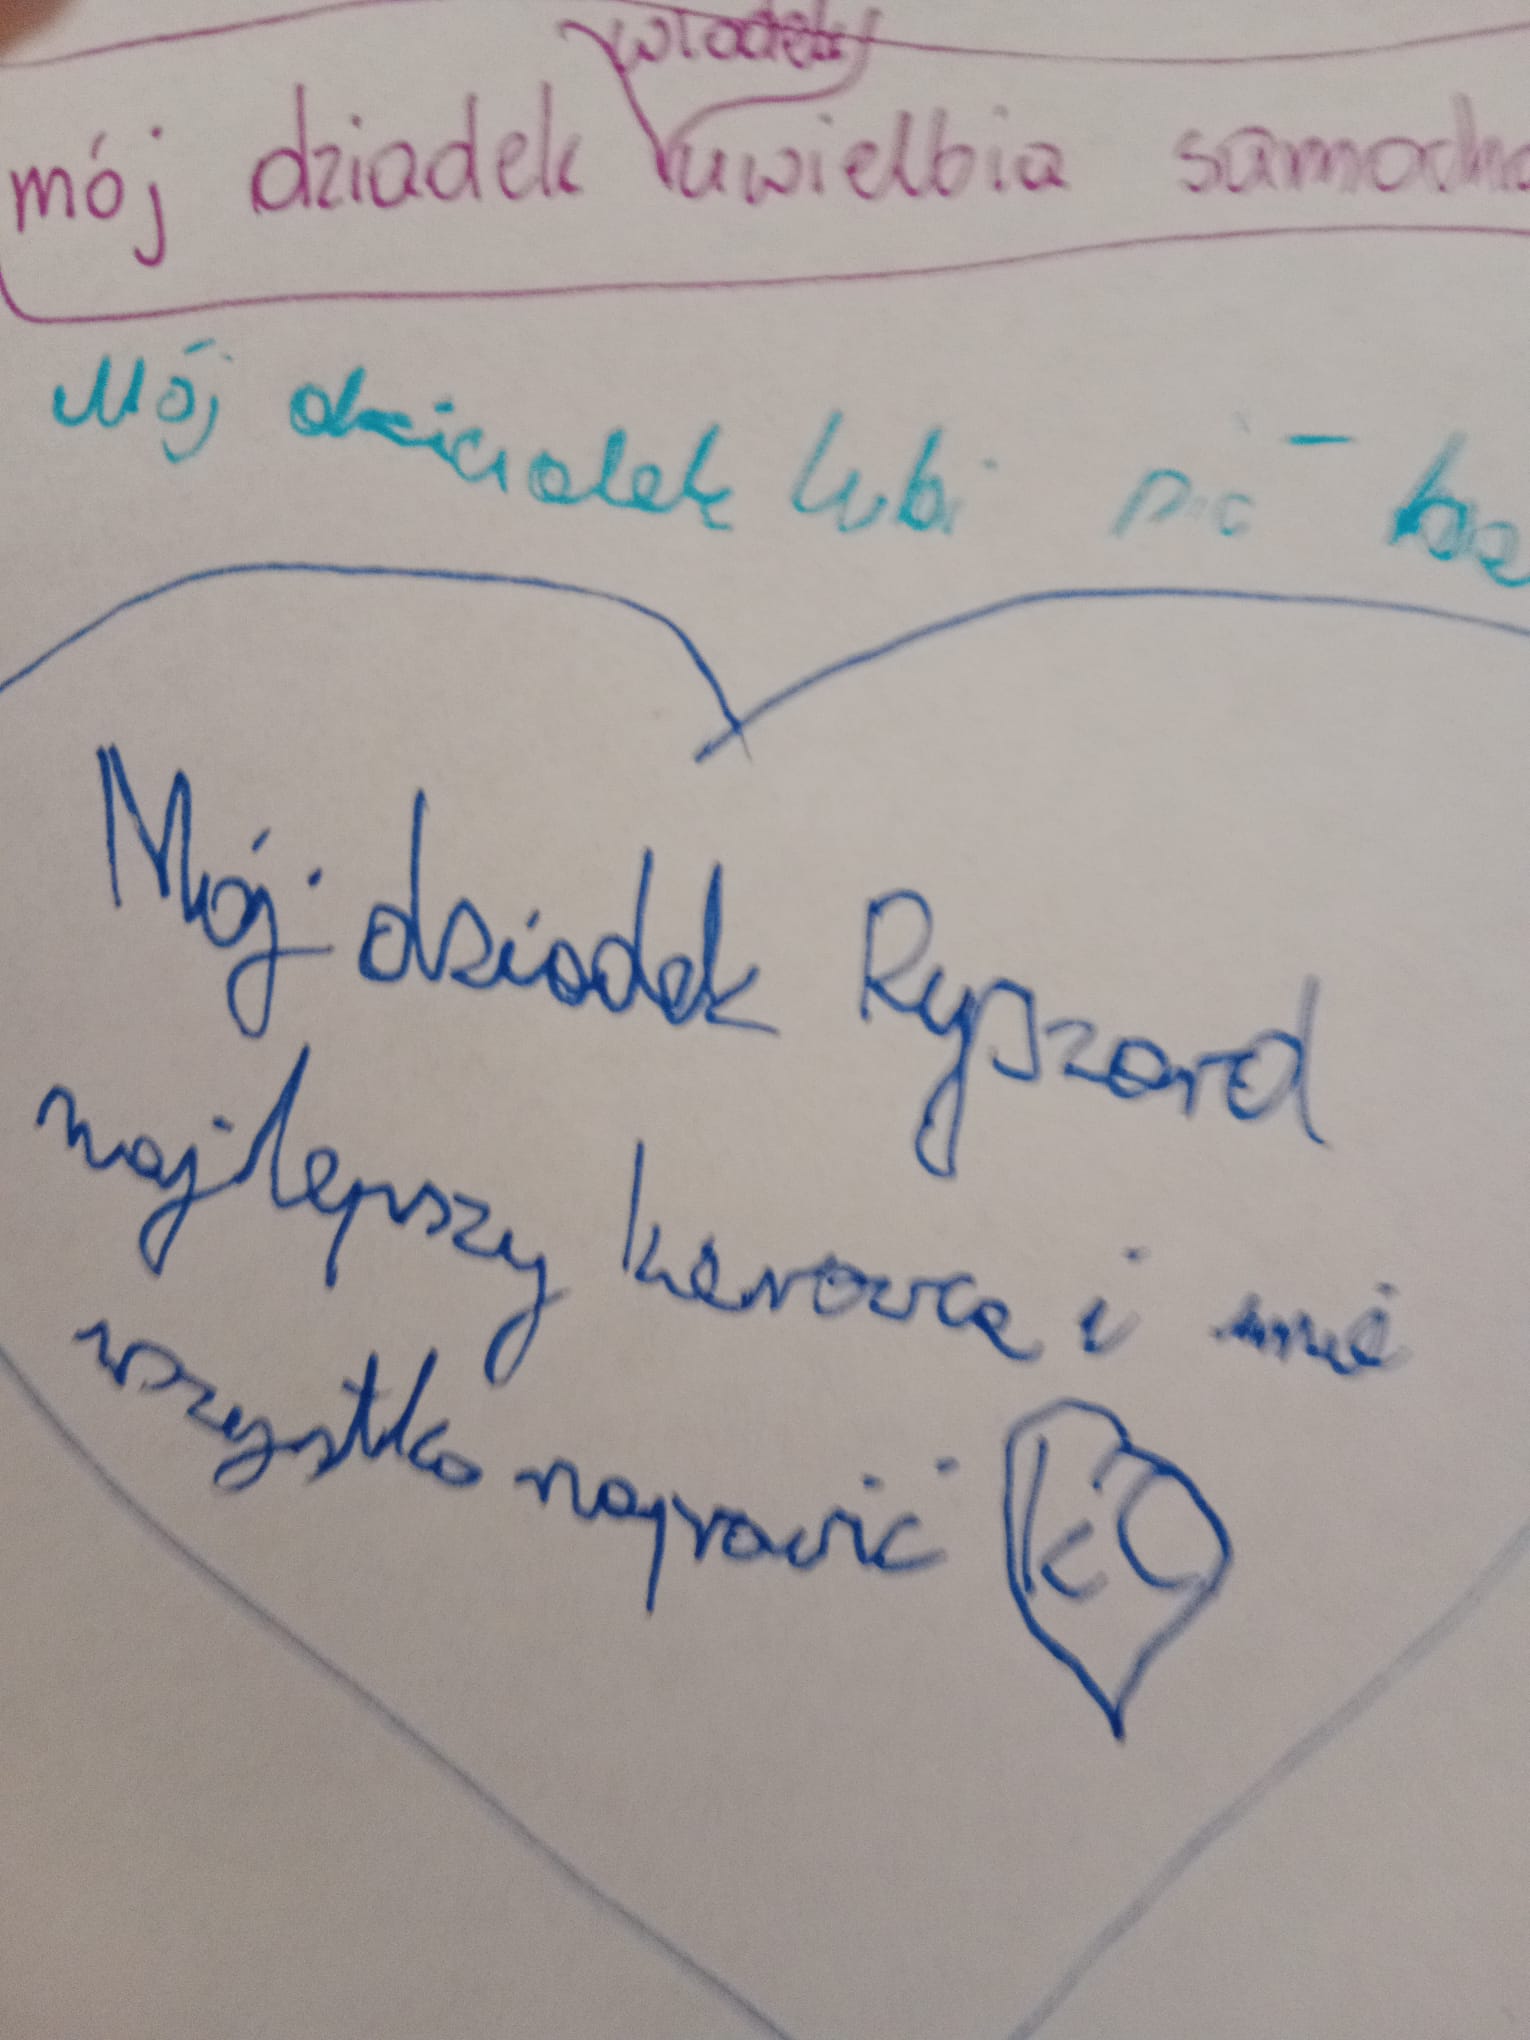 władek
mój dziadek uwielbia
Mój dziadek lubi pić
Mój dziadek Ryszard
najlepszy kerowca i umi
wszystko naprawić